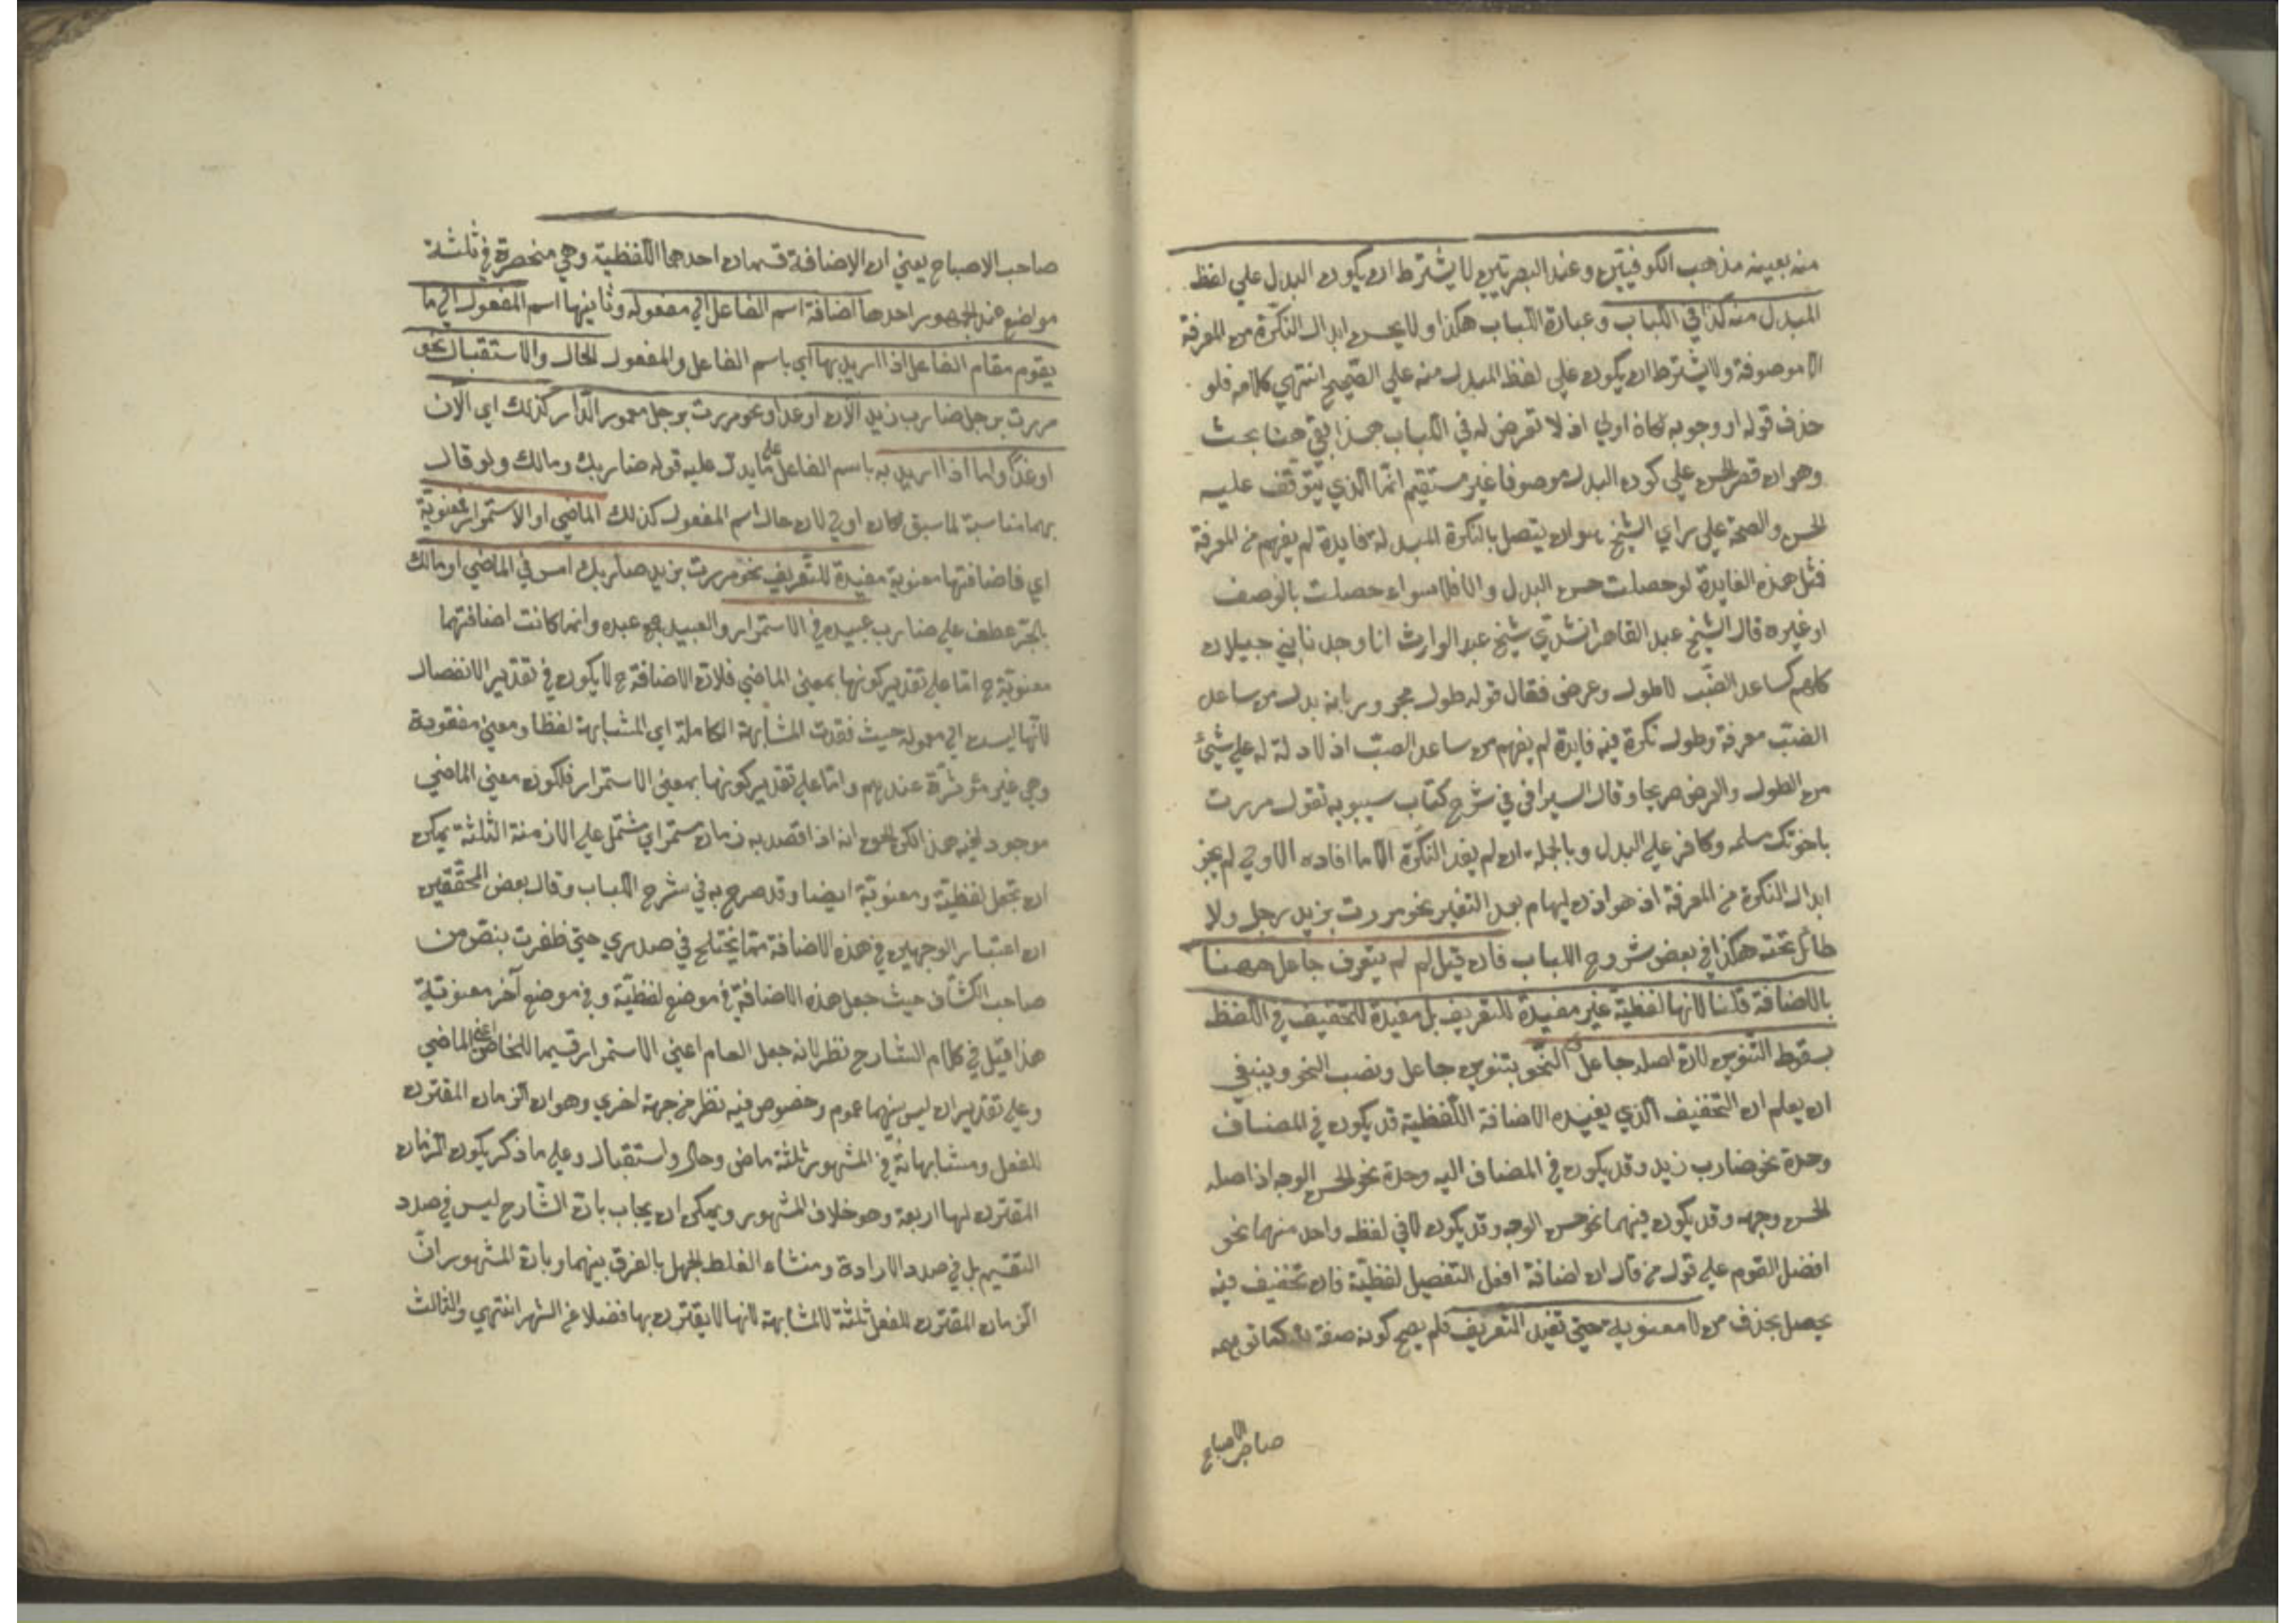 منه بعينه مذهب الكوفيين وعند البصريين لا يشترط ان يكون البدل علي لفظ
المبدل منه كذا في اللباب وعبارة اللباب هكذا ولا يحسن ابدال النكرة من المعرفة
الا موصوفة ولا يشترط ان يكون علي لفظ المبدل منه علي الصحيح انتهي كلامه فلو
حذف قوله او وجوبه لكان اولي اذ لا تعرض له في اللباب هذا بقي هنا بحث
وهو ان قصر الحسن علي كون البدل موصوفا غير مستقيم انما الذي يتوقف عليه
الحسن والصحة علي راي الشيخ هو ان يتصل بالنكرة المبدلة فايدة لم يفهم من المعرفة
فمثل هذه الفايدة لو حصلت حسن البدل والا فلا سواء حصلت بالوصف
او غيره قال الشيخ عبد القاهر انشدني شيخ عبد الوارث انا وجدنا بني جيلان
كلهم كساعد الضب لا طول وعرض فقال قوله طول مجرور بانه بدل من ساعد
الضب معرفة وطول نكرة فيه فايدة لم يفهم من ساعد الضب اذ لا دلالة له علي شيئ
من الطول والعرض صريحا وقال السيرافي في شرح كتاب سيبويه تقول مررت
باخوتك مسلم وكافر علي البدل وبالجملة ان لم يفد النكرة الا ما افاده الاولي لم يجز
ابدال النكرة من المعرفة اذ هو اذن ابهام بعد التفسير نحو مررت بزيد رجل ولا
طائل تحته هكذا في بعض شروح اللباب فان قيل لم لم يتعرف جاعل ههنا
بالاضافة قلنا لانها لفظية غير مفيدة للتعريف بل مفيدة للتخفيف في اللفظ
بسقوط التنوين لان اصله جاعل النحو بتنوين جاعل ونصب النحو وينبغي
ان يعلم ان التخفيف الذي يفيده الاضافة اللفظية قد يكون في المضاف
وحدة نحو ضارب زيد وقد يكون في المضاف اليه وحدة نحو الحسن الوجه اذ اصله
الحسن وجهه وقد يكون فيهما نحو حسن الوجه وقد يكون لا في لفظ واحد منهما نحو
افضل القوم علي قول من قال ان اضافة افعل التفضيل لفظية فان تخفيف فيه
يحصل بحذف من لا معنوية حتي تفيد التعريف فلم يصح كونه صفة لله كما توهمه
صاحب الاصباح
صاحب الاصباح يعني ان الاضافة قسمان احدهما اللفظية وهي منحصرة في ثلثة
مواضع عند الجمهور احدها اضافة اسم الفاعل الي مفعوله وثانيها اسم المفعول الي ما
يقوم مقام الفاعل اذا اريد بها اي باسم الفاعل والمفعول الحال والاستقبال نحو
مررت برجل ضارب زيد الان او غدا ونحو مررت برجل معمور الدار كذلك اي الآن
او غدا واما اذا اريد به باسم الفاعل علي ما يدل عليه قوله ضاربك ومالك ولو قال
بهما مناسبة لما سبق لكان اولي لان حال اسم المفعول كذلك الماضي او الاستمرار فمعنوية
اي فاضافتها معنوية مفيدة للتعريف نحو مررت بزيد ضاربك امس في الماضي او مالك
بالجر عطف علي ضارب عبيده في الاستمرار والعبيد جمع عبده وانما كانت اضافتهما
معنوية ح اما علي تقدير كونها بمعني الماضي فلان الاضافة ح لا يكون في تقدير الانفصال
لانها ليست الي معموله حيث فقدت المشابهة الكاملة اي المشابهة لفظا ومعني مفقودة
وهي غير مؤثرة عندهم واما علي تقدير كونها بمعني الاستمرار فلكون معني الماضي
موجود فيه هذا لكن الحق انه اذا قصد به زمان مستمر اي مشتمل علي الازمنة الثلثة يمكن
ان تجعل لفظية ومعنوية ايضا وقد صرح به في شرح اللباب وقال بعض المحققين
ان اعتبار الوجهين في هذه الاضافة مما يختلج في صدري حتي ظفرت بنص من
صاحب الكشاف حيث جعل هذه الاضافة في موضع لفظية وفي موضع آخر معنوية
هذا قيل في كلام الشارح نظر لانه جعل العام اعني الاستمرار قسيما للخاص اعني الماضي
وعلي تقدير ان ليس بينهما عموم وخصوص فيه نظر من جهة اخري وهو ان الزمان المقترن
للفعل ومشابهاته في المشهور ثلثة ماض وحال واستقبال وعلي ما ذكر يكون الزمان
المقترن لها اربعة وهو خلاف المشهور ويمكن ان يجاب بان الشارح ليس في صدد
التقسيم بل في صدد الارادة ومنشاء الغلط الجهل بالفرق بينهما وبان المشهور ان
الزمان المقترن للفعل ثلثة لا لمشابهة لانها لا يقترن بها فضلا عن الشهر انتهي والثالث